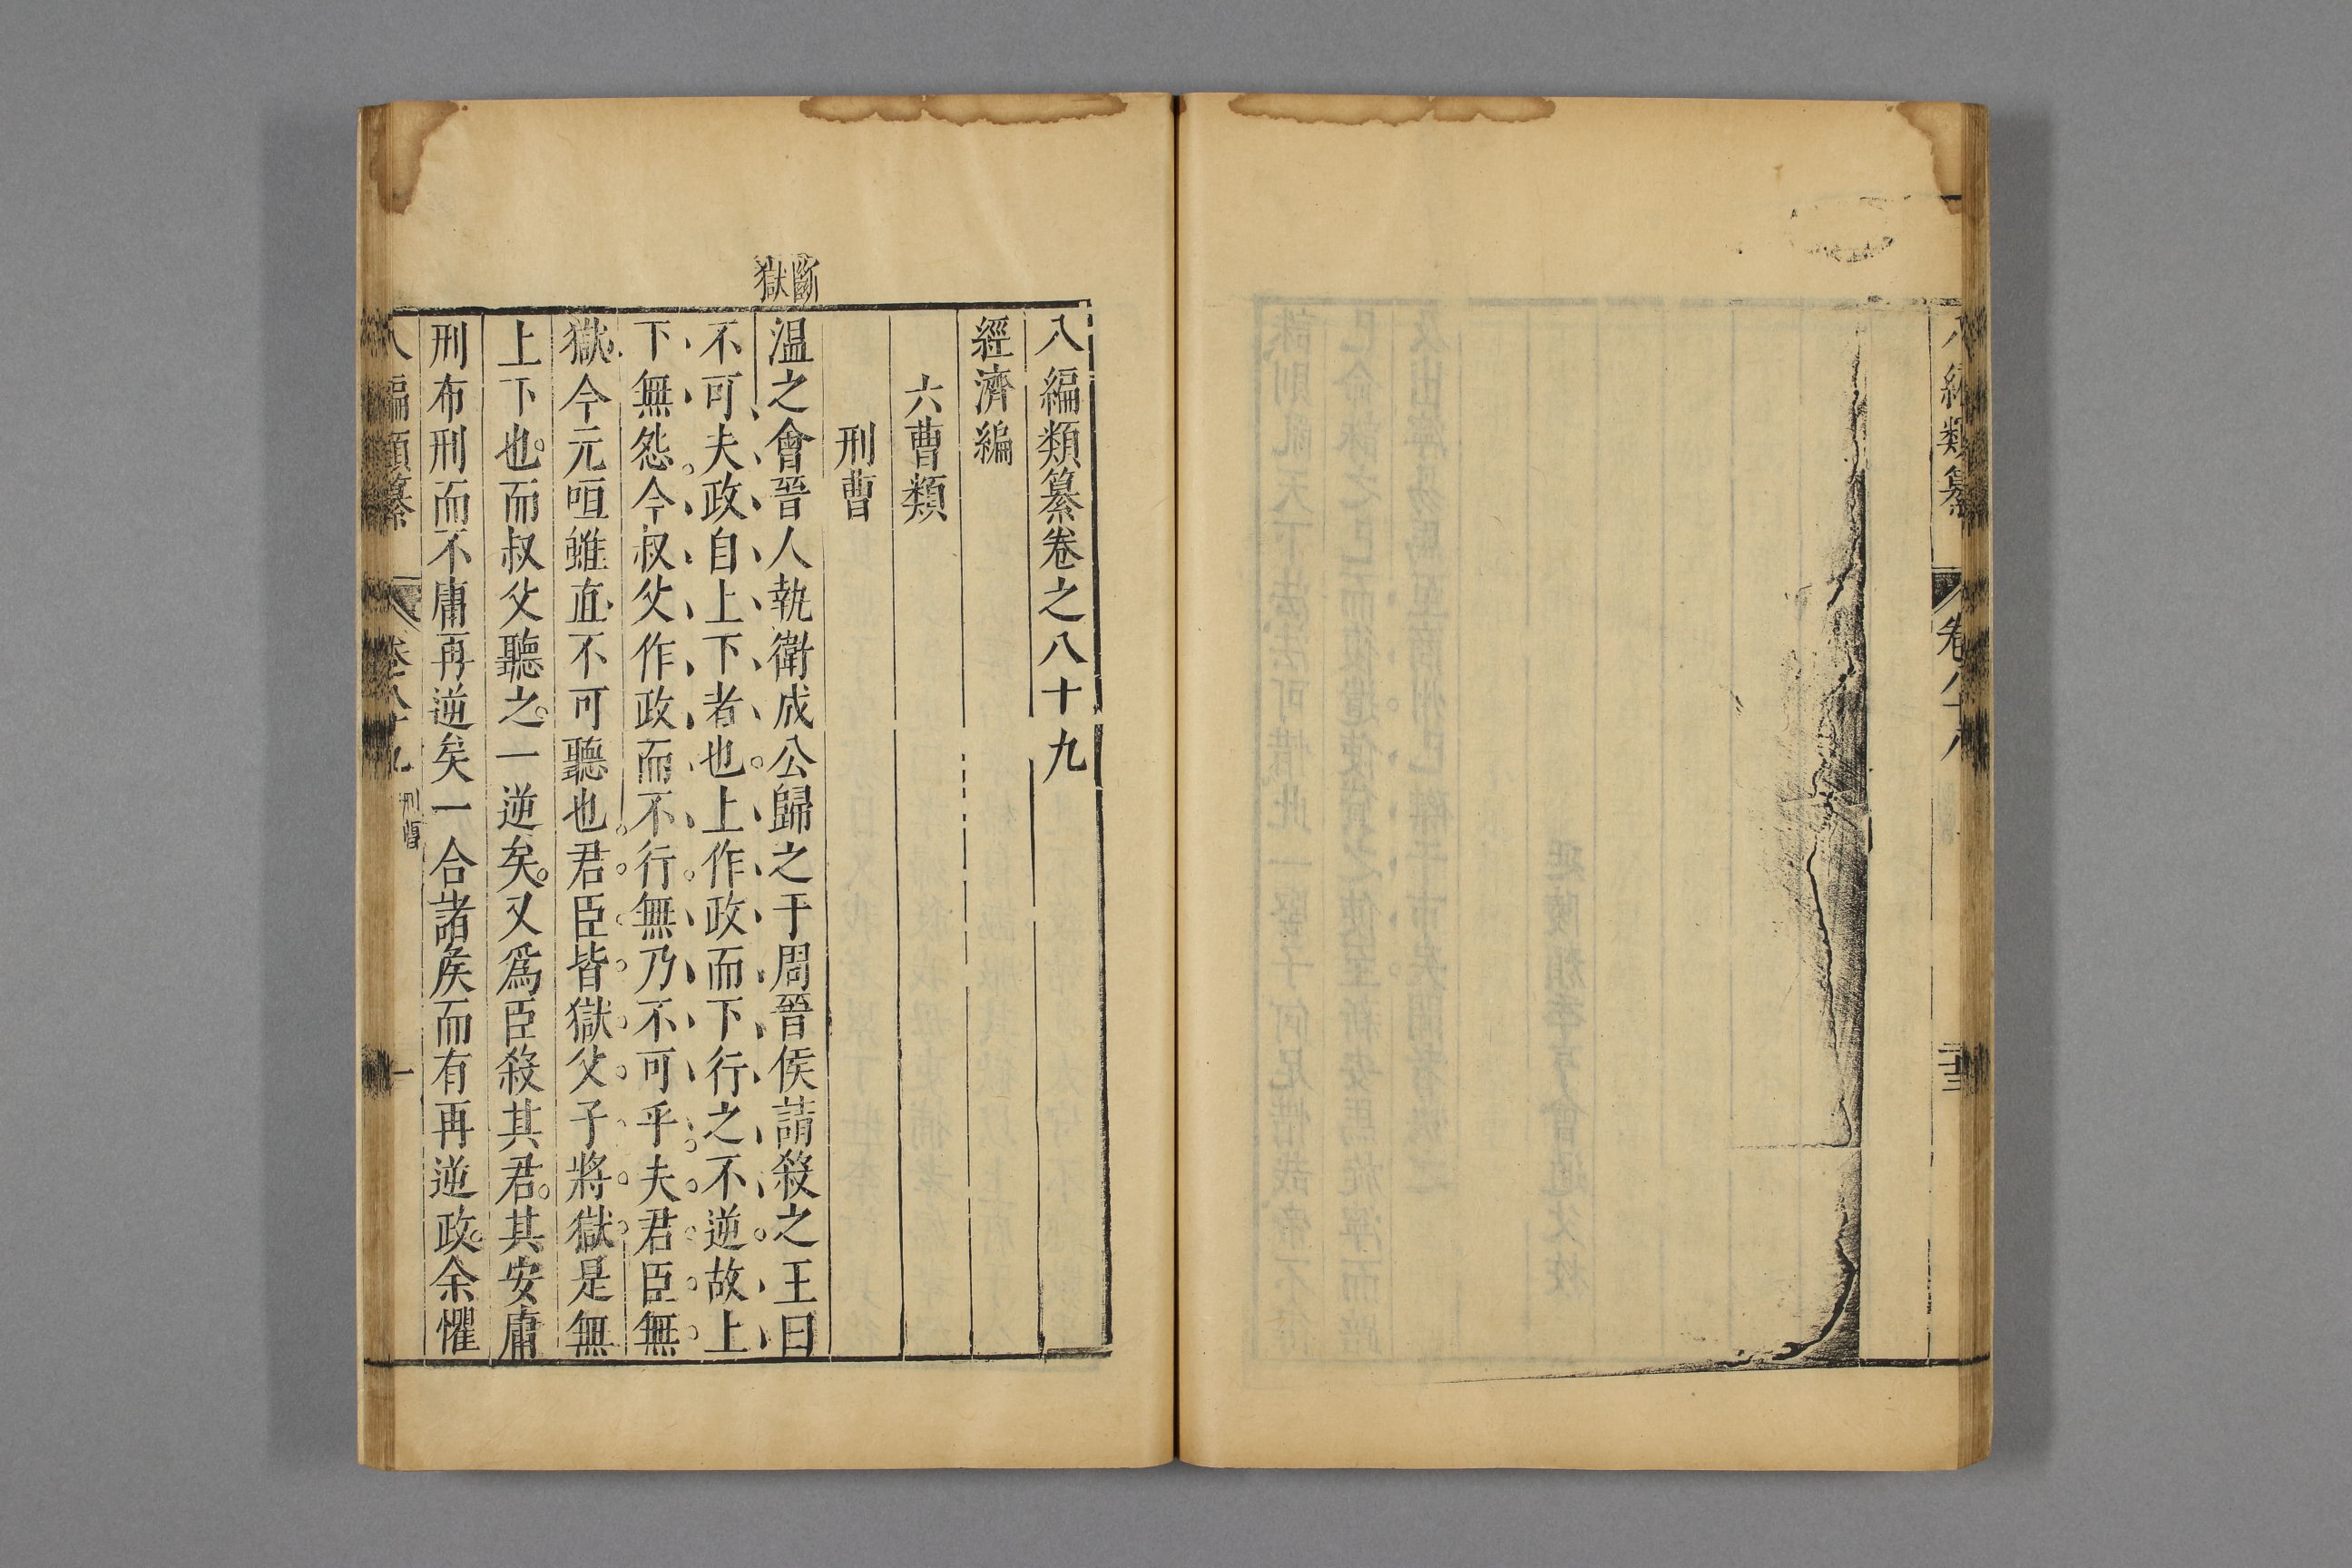 八編類纂
卷八十八
八編類纂卷之八十九
經濟編
六曹類
刑曹
斷獄
温之會晉人執衛成公歸之于周晉侯請殺之王曰
不可夫政自上下者也上作政而下行之不逆故上
下無怨今叔父作政而不行無乃不可乎夫君臣無
獄今元咺雖直不可聽也君臣皆獄父子將獄是無
上下也而叔父聽之一逆矣又爲臣殺其君其安庸
刑布刑而不庸再逆矣一合諸侯而有再逆政余懼
八編類纂
卷八十九
刑曹
一